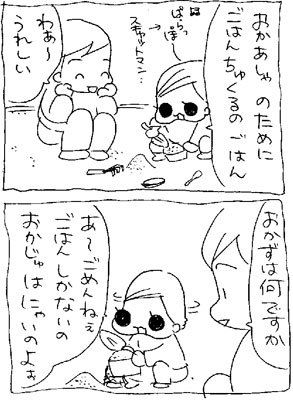 おかあしゃ のために
ごはんちゅくるの ごはん
ぱらっ
ぽ
スキャットマン…
わあ〜
うれしい
おかずは何ですか
あ〜ごめんねぇ
ごはんしかないの
おかじゅはにゃいのよぉ